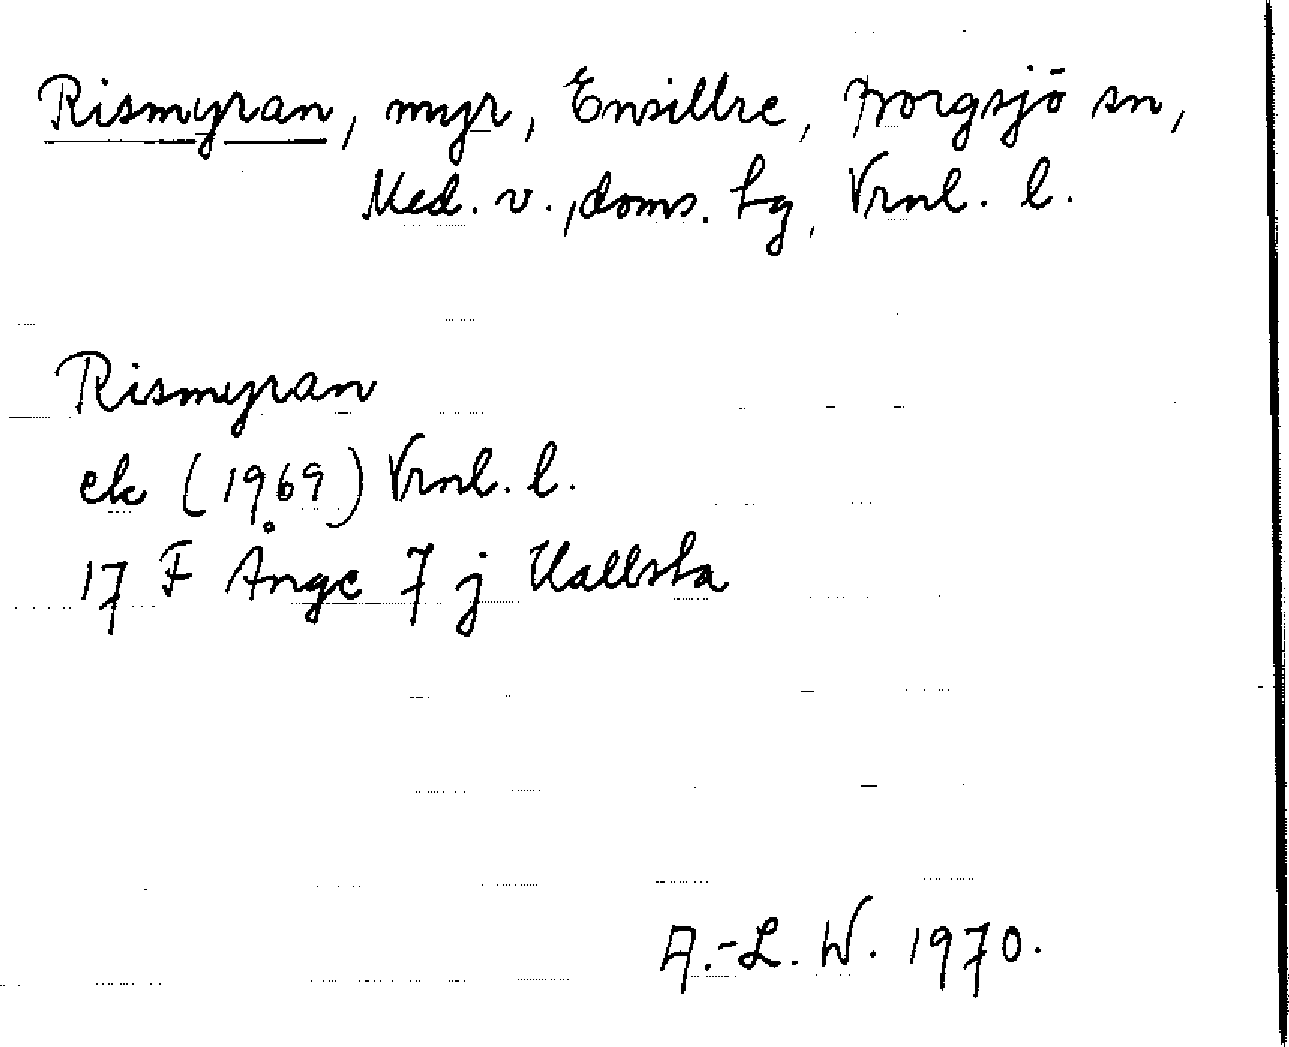 Rismyran, myr, Ensillre, Borgsjö sn,
Med. v., doms. tg, Vrnl. l.
Rismyran
ek (1969) Vrnl. l.
17 F Ånge 7 j Hallsta
A.-L. W. 1970.